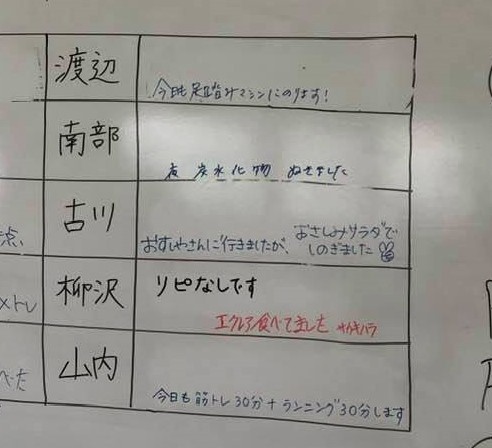 渡辺
今日も足踏みマシンにのります!
南部
夜 炭水化物 ぬきました
古川
おすしやさんに行きましたが、おさしみサラダで
しのぎました
柳沢
リピなしです
エクレア食べてました
山内
今日も筋トレ30分+ランニング30分します
点、
メトレ
べた